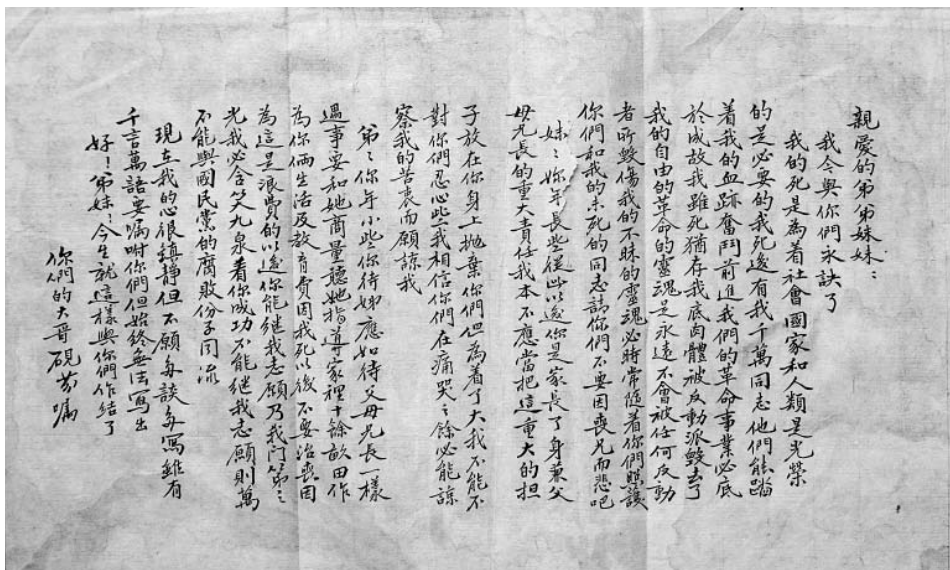 親爱的弟弟妹妹：
我今與你們永訣了
我的死是為着社會國家和人類是光榮
的是必要的我死後有我千萬同志他們能踏
着我的血跡奋鬥前進我們的革命事業必底
於成故我雖死猶存我底肉體被反動派毀去了
我的自由的革命的靈魂是永遠不會被任何反動
者所毀傷我的不昧的靈魂必時常随着你們照護
你們和我的未死的同志請你們不要因喪兄而悲吧
妹：妳年長些從此以後你是家長了身兼父
母兄長的重大責任我本不應當把這重大的担
子放在你身上抛棄你們但為着了大我不能不
對你們忍心些我相信你們在痛哭：餘必能諒
察我的苦衷而願諒我
弟：你年小些你待姊應如待父母兄長一樣
遇事要和她商量聽她指導家裡十餘畝田作
為你倆生活及教育費因我死以後不要治喪因
為這是浪費的以後你能继我志願乃我门第之
光我必含笑九泉看你成功不能继我志願則萬
不能與國民黨的腐敗份子同流
現在我的心很鎮静但不願多談多寫雖有
千言萬語要嘱咐你們但始終無法寫出
好！弟妹！今生就這樣與你們作结了
你們的大哥硯芬嘱